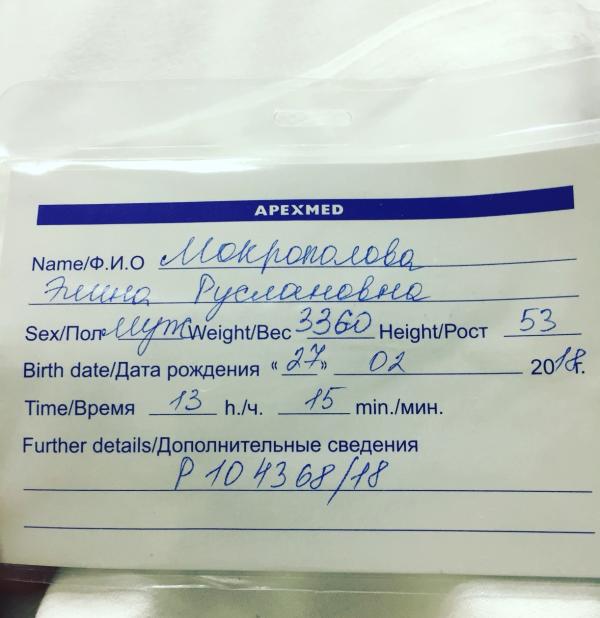 APEXMED
Name/Ф.И.О Мокрополова
Элина Руслановна
Sex/Пол муж Weight/Вес 3360 Height/Рост 53
Birth date/Дата рождения «27» 02 2018г.
Time/Время 13 h./ч. 15 min./мин.
Further details/Дополнительные сведения
Р 10 4368/18